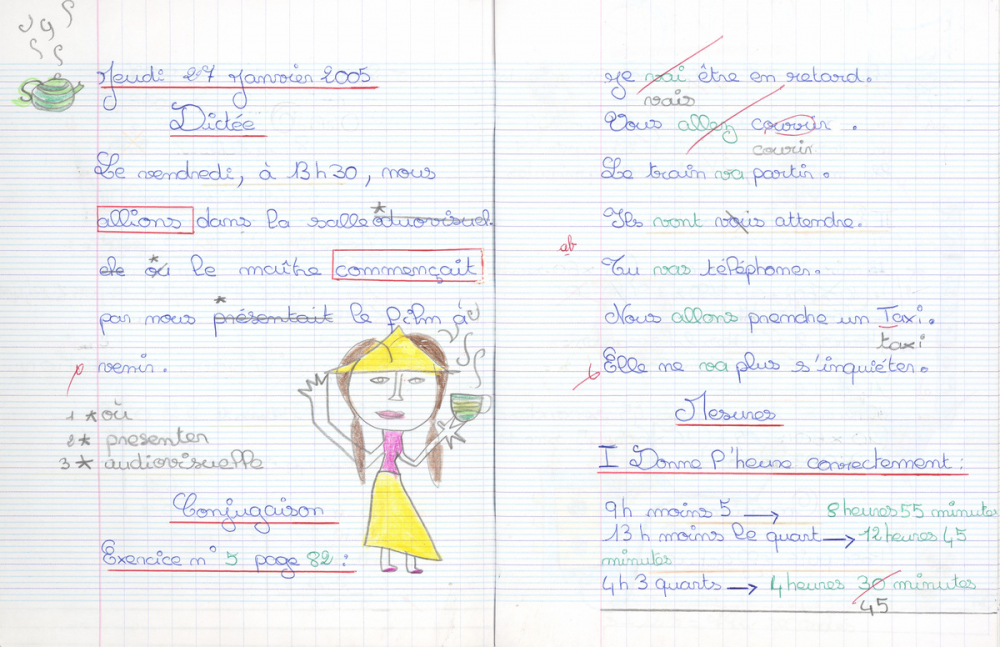 Jeudi 27 Janvier 2005
Dictée
Le vendredi, à 13h30, nous
allions dans la salle * audiovisuel.
de * où le maître commençait
par nous * présentait le film à
venir.
1 * où
2 * presenter
3 * audiovisuelle
Conjugaison
Exercice n° 5 page 82 :
Je vai être en retard.
vais
Vous allez courrir .
courir
Le train va partir.
Ils vont vais attendre.
ab
Tu vas téléphoner.
Nous allons prendre un Taxi.
taxi
Elle ne va plus s'inquiéter.
Mesures
I Donne l'heure correctement :
9h moins 5 → 8 heures 55 minutes
13 h moins le quart → 12 heures 45
minutes
4h 3 quarts → 4 heures 30 minutes
45